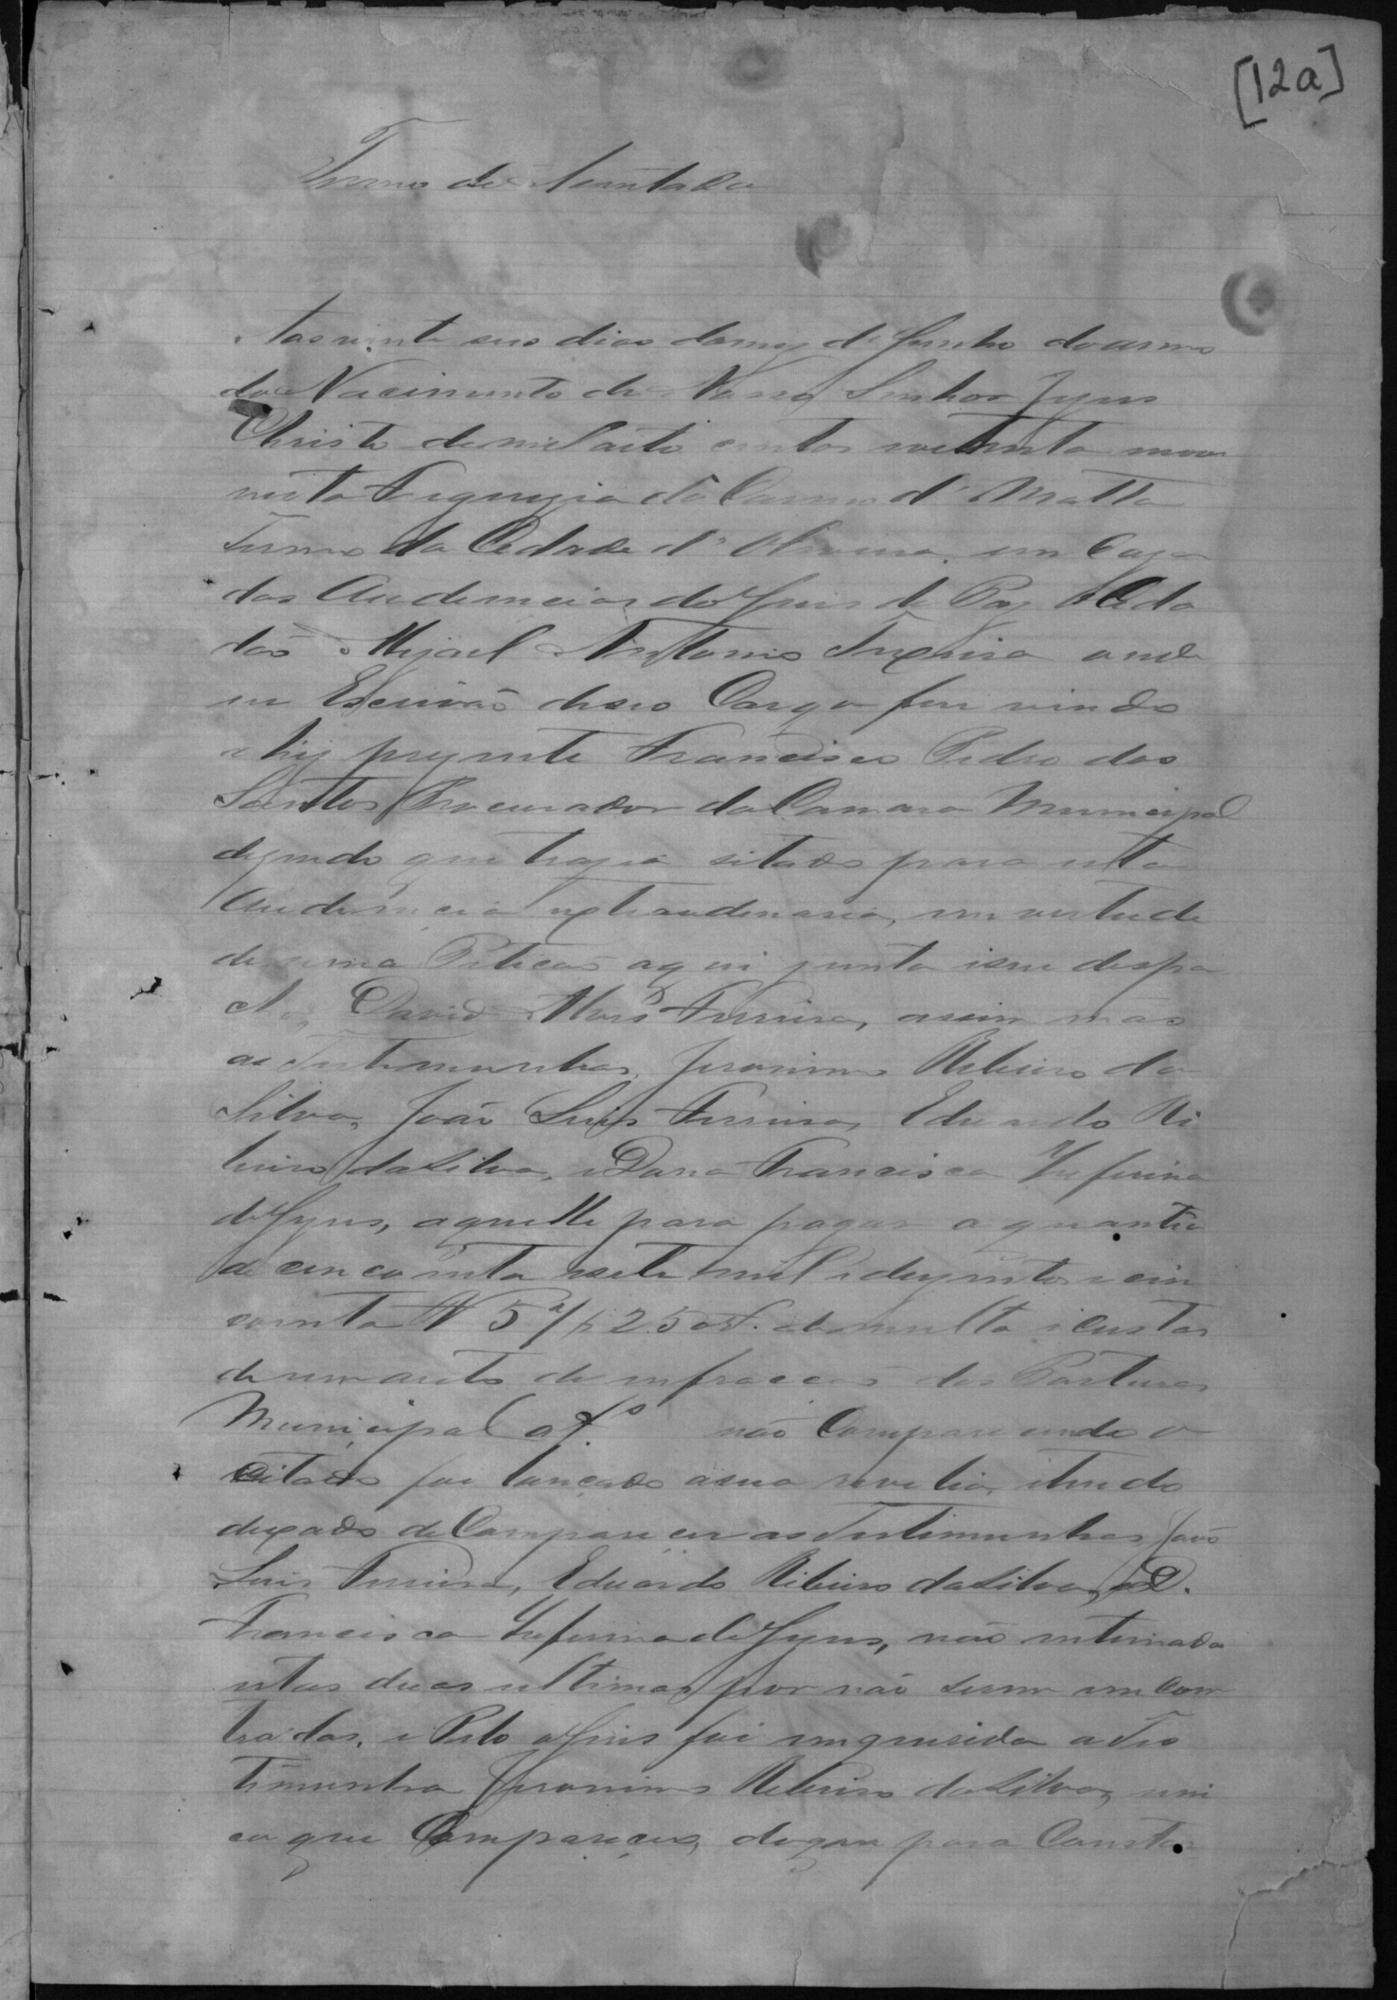 [12a]
Termo de Acentada
Aos vinte seis dias do mez de Junho do anno
do Nacimento de Nosso Senhor Jezus
Christo de mil oito centos e oitenta nove
nesta Freguezia do Carmo d'a Matta
Termo da Cidade d'a Oliveira, em Caza
das Audiencias do Juis de Paz o Cida
dão Migael Antonio Texeira onde
eu Escrivão desseo Cargo fui vindo
e hi prezente Francisco Pedro dos
Santos Procurador da Camara Municipal
dizendo que trazia sitado para esta
Audiencia extraudenaria, em vertude
de uma Peticão aqui junta i seu despa
cho, David Alves Ferreira, assim mas
as Testemunhas, Jeronimo Ribeiro da
Silva, João Luis Ferreira, Eduardo Ri
beiro da Silva, e Dona Francisca Zeferina
de Jezus, aquelle para pagar a quantia
de cincoenta e sete mil e duzentos e cin
coenta 57$250 r. de multa i custas
de um auto de infraccão das Posturas
Municipal não Comparecendo o
citado foi lançado a sua revelia, i tendo
dexado de Comparecer as Testemunhas João
Luis Ferreira, Eduardo Ribeiro da Silva, e D.
Francisca Zeferina de Jezus, não intimada
estas duas ultimas por não serem emcon
tradas, e Pelo o Juis foi enquerida a Tes
timunha Jeronimo Ribeiro da Silva, uni
ca que Compareceu, do que para Constar